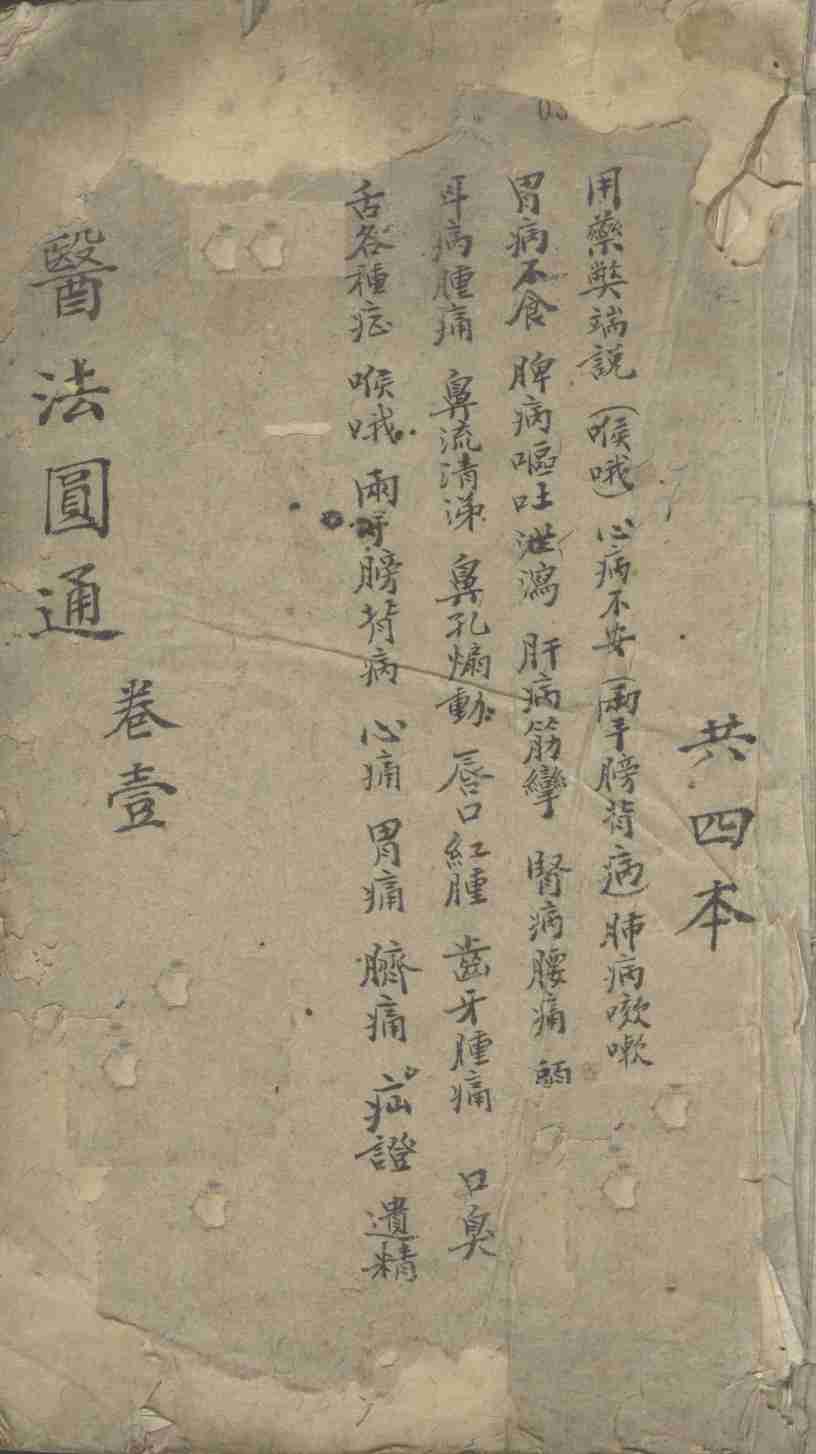 共四本
用藥弊端說（喉哦）心病不安（兩手膀背病）肺病咳嗽
胃病不食 脾病嘔吐泄瀉 肝病筋攣 腎病腰痛
耳病腫痛 鼻流清涕 鼻孔煽動 唇口紅腫 齒牙腫痛 口臭
舌各種症 喉哦 兩手膀背病 心痛 胃痛 臍痛 疝證 遺精
醫法圓通
卷壹